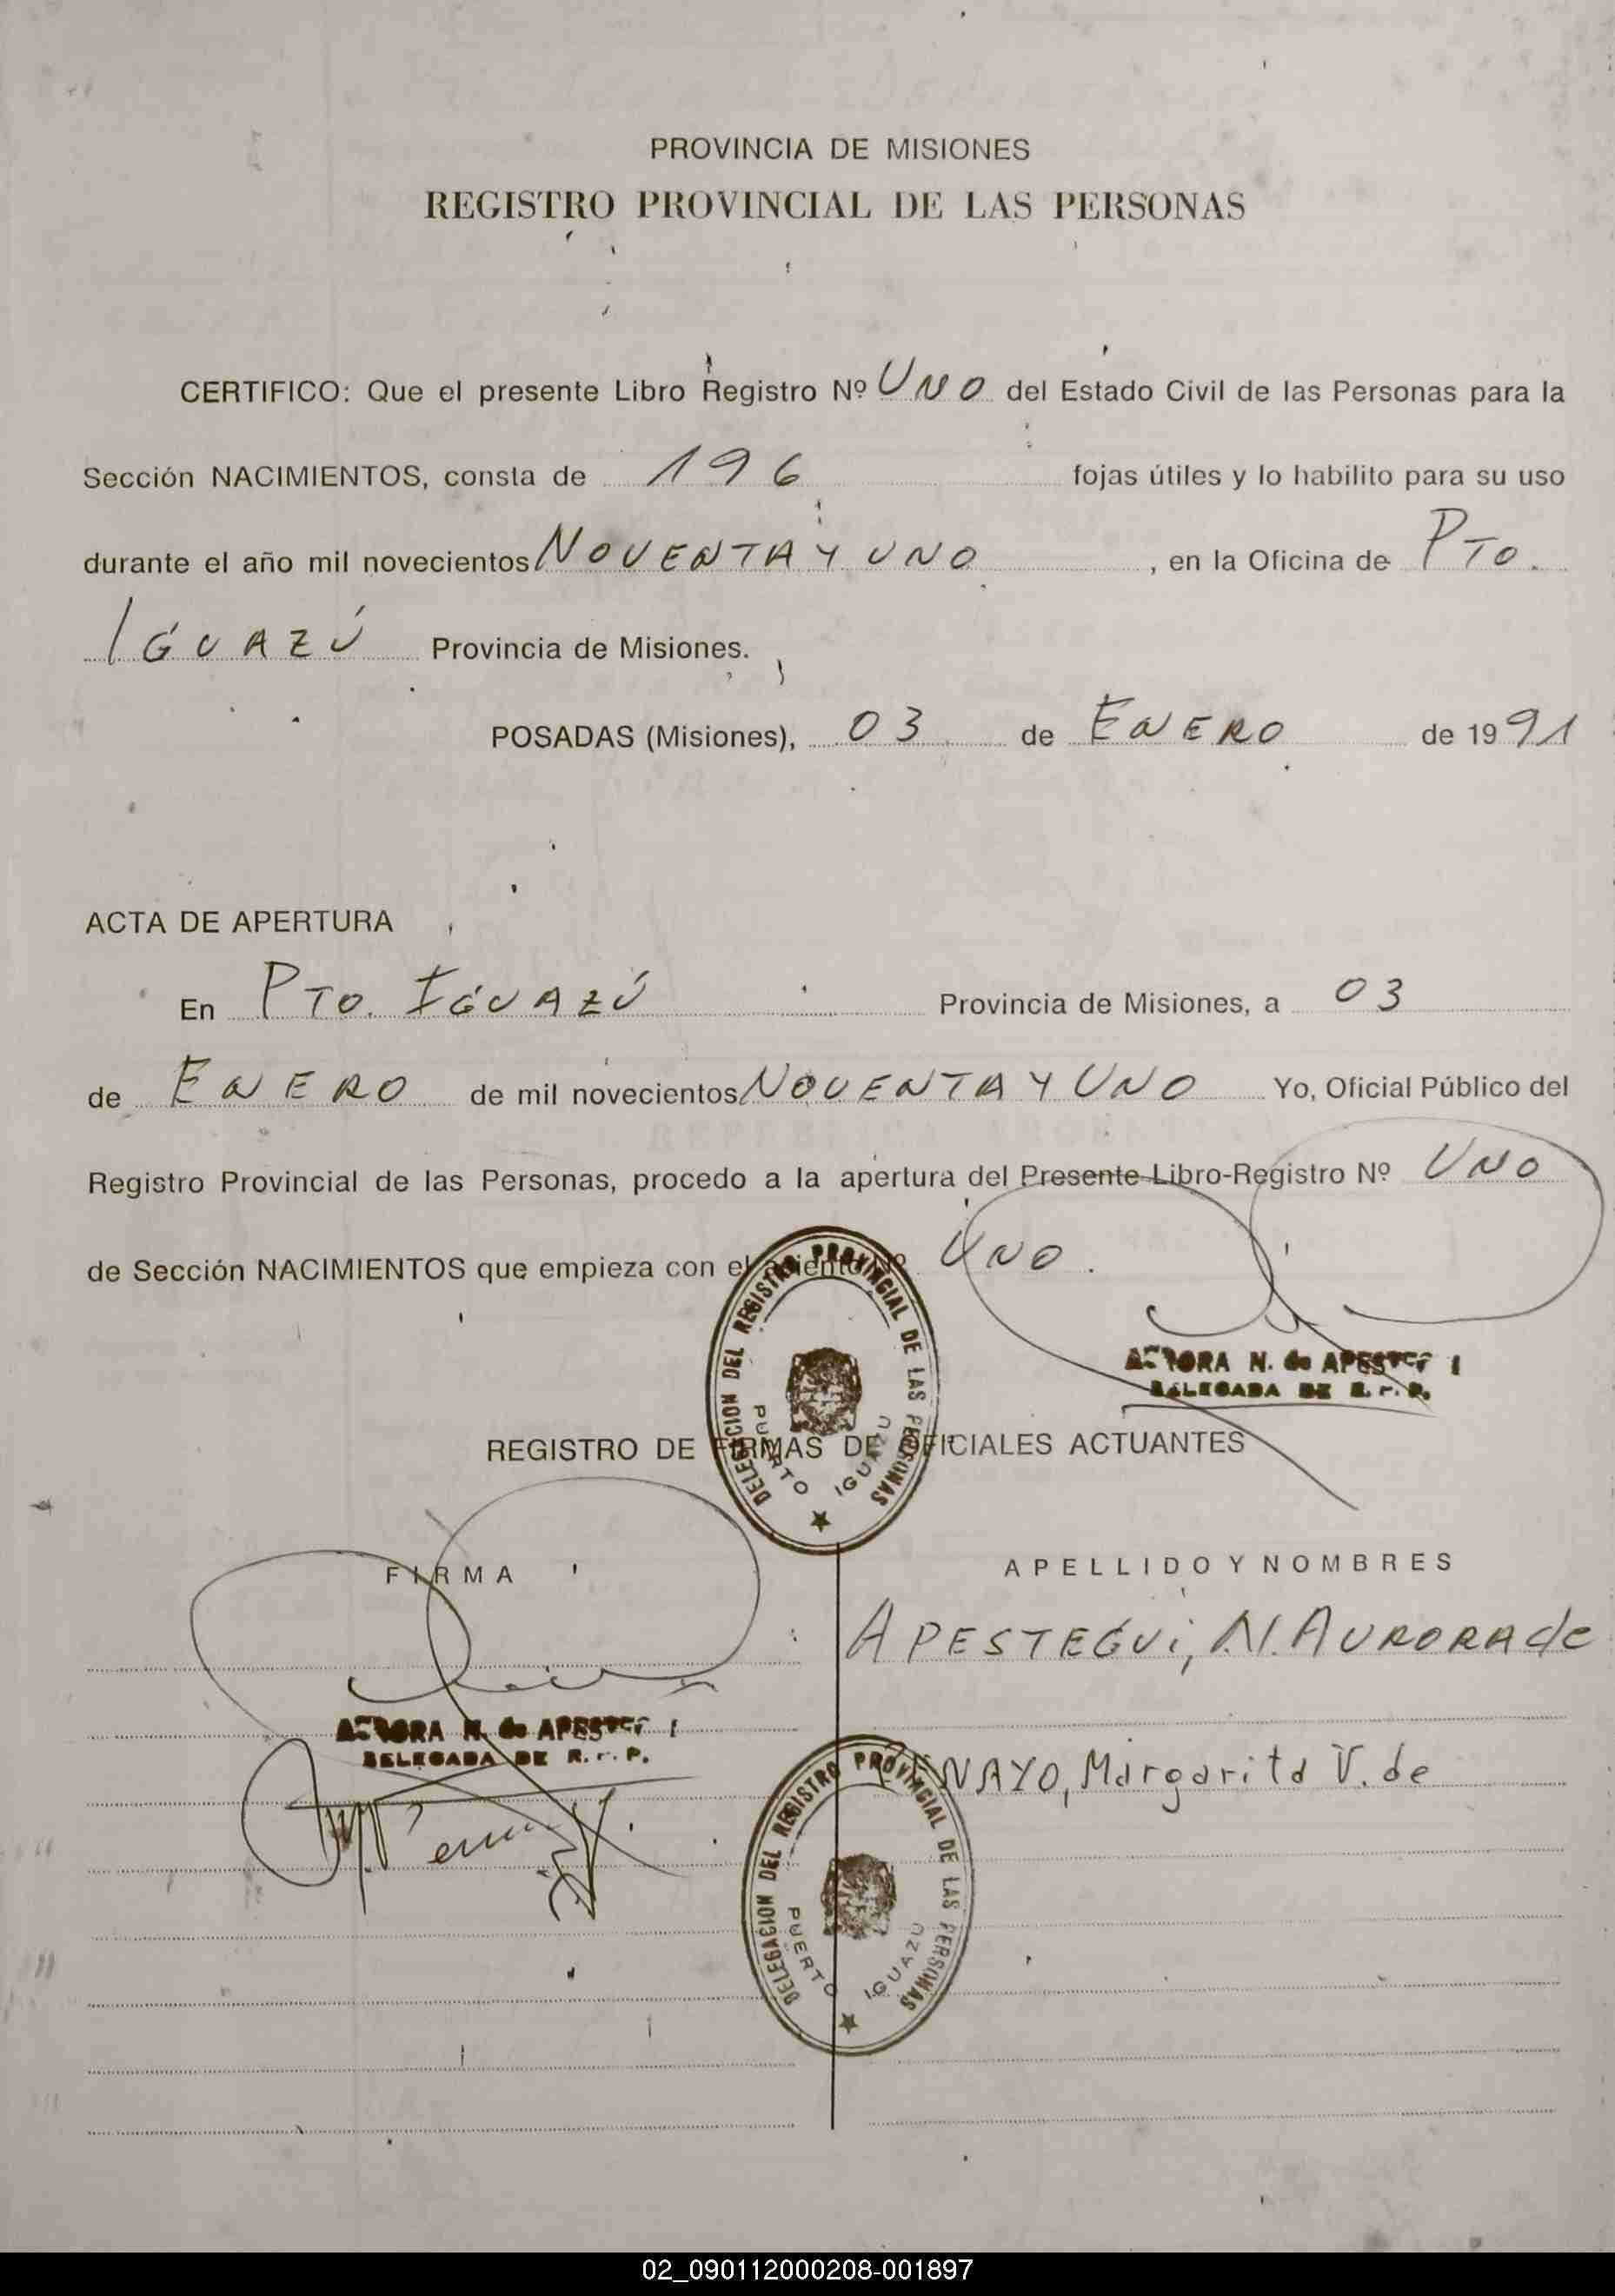 PROVINCIA DE MISIONES
REGISTRO PROVINCIAL DE LAS PERSONAS
CERTIFICO: Que el presente Libro Registro Nº UNO del Estado Civil de las Personas para la
Sección NACIMIENTOS, consta de 196 fojas útiles y lo habilito para su uso
durante el año mil novecientos NOVENTA Y UNO, en la Oficina de PTO.
IGUAZÚ Provincia de Misiones.
POSADAS (Misiones), 03 de ENERO de 1991
ACTA DE APERTURA
En PTO. IGUAZÚ Provincia de Misiones, a 03
de ENERO de mil novecientos NOVENTA Y UNO Yo, Oficial Público del
Registro Provincial de las Personas, procedo a la apertura del Presente Libro-Registro Nº UNO
de Sección NACIMIENTOS que empieza con el asiento Nº UNO.
DELEGACION DEL REGISTRO PROVINCIAL DE LAS PERSONAS
PUERTO IGUAZU
AURORA N. de APESTEGUI
DELEGADA DE R. P. P.
REGISTRO DE FIRMAS DE OFICIALES ACTUANTES
FIRMA APELLIDO Y NOMBRES
APESTEGUI, N. AURORA de
AURORA N. de APESTEGUI
DELEGADA DE R. P. P.
Margarita V. de
DELEGACION DEL REGISTRO PROVINCIAL DE LAS PERSONAS
PUERTO IGUAZU
02_090112000208-001897